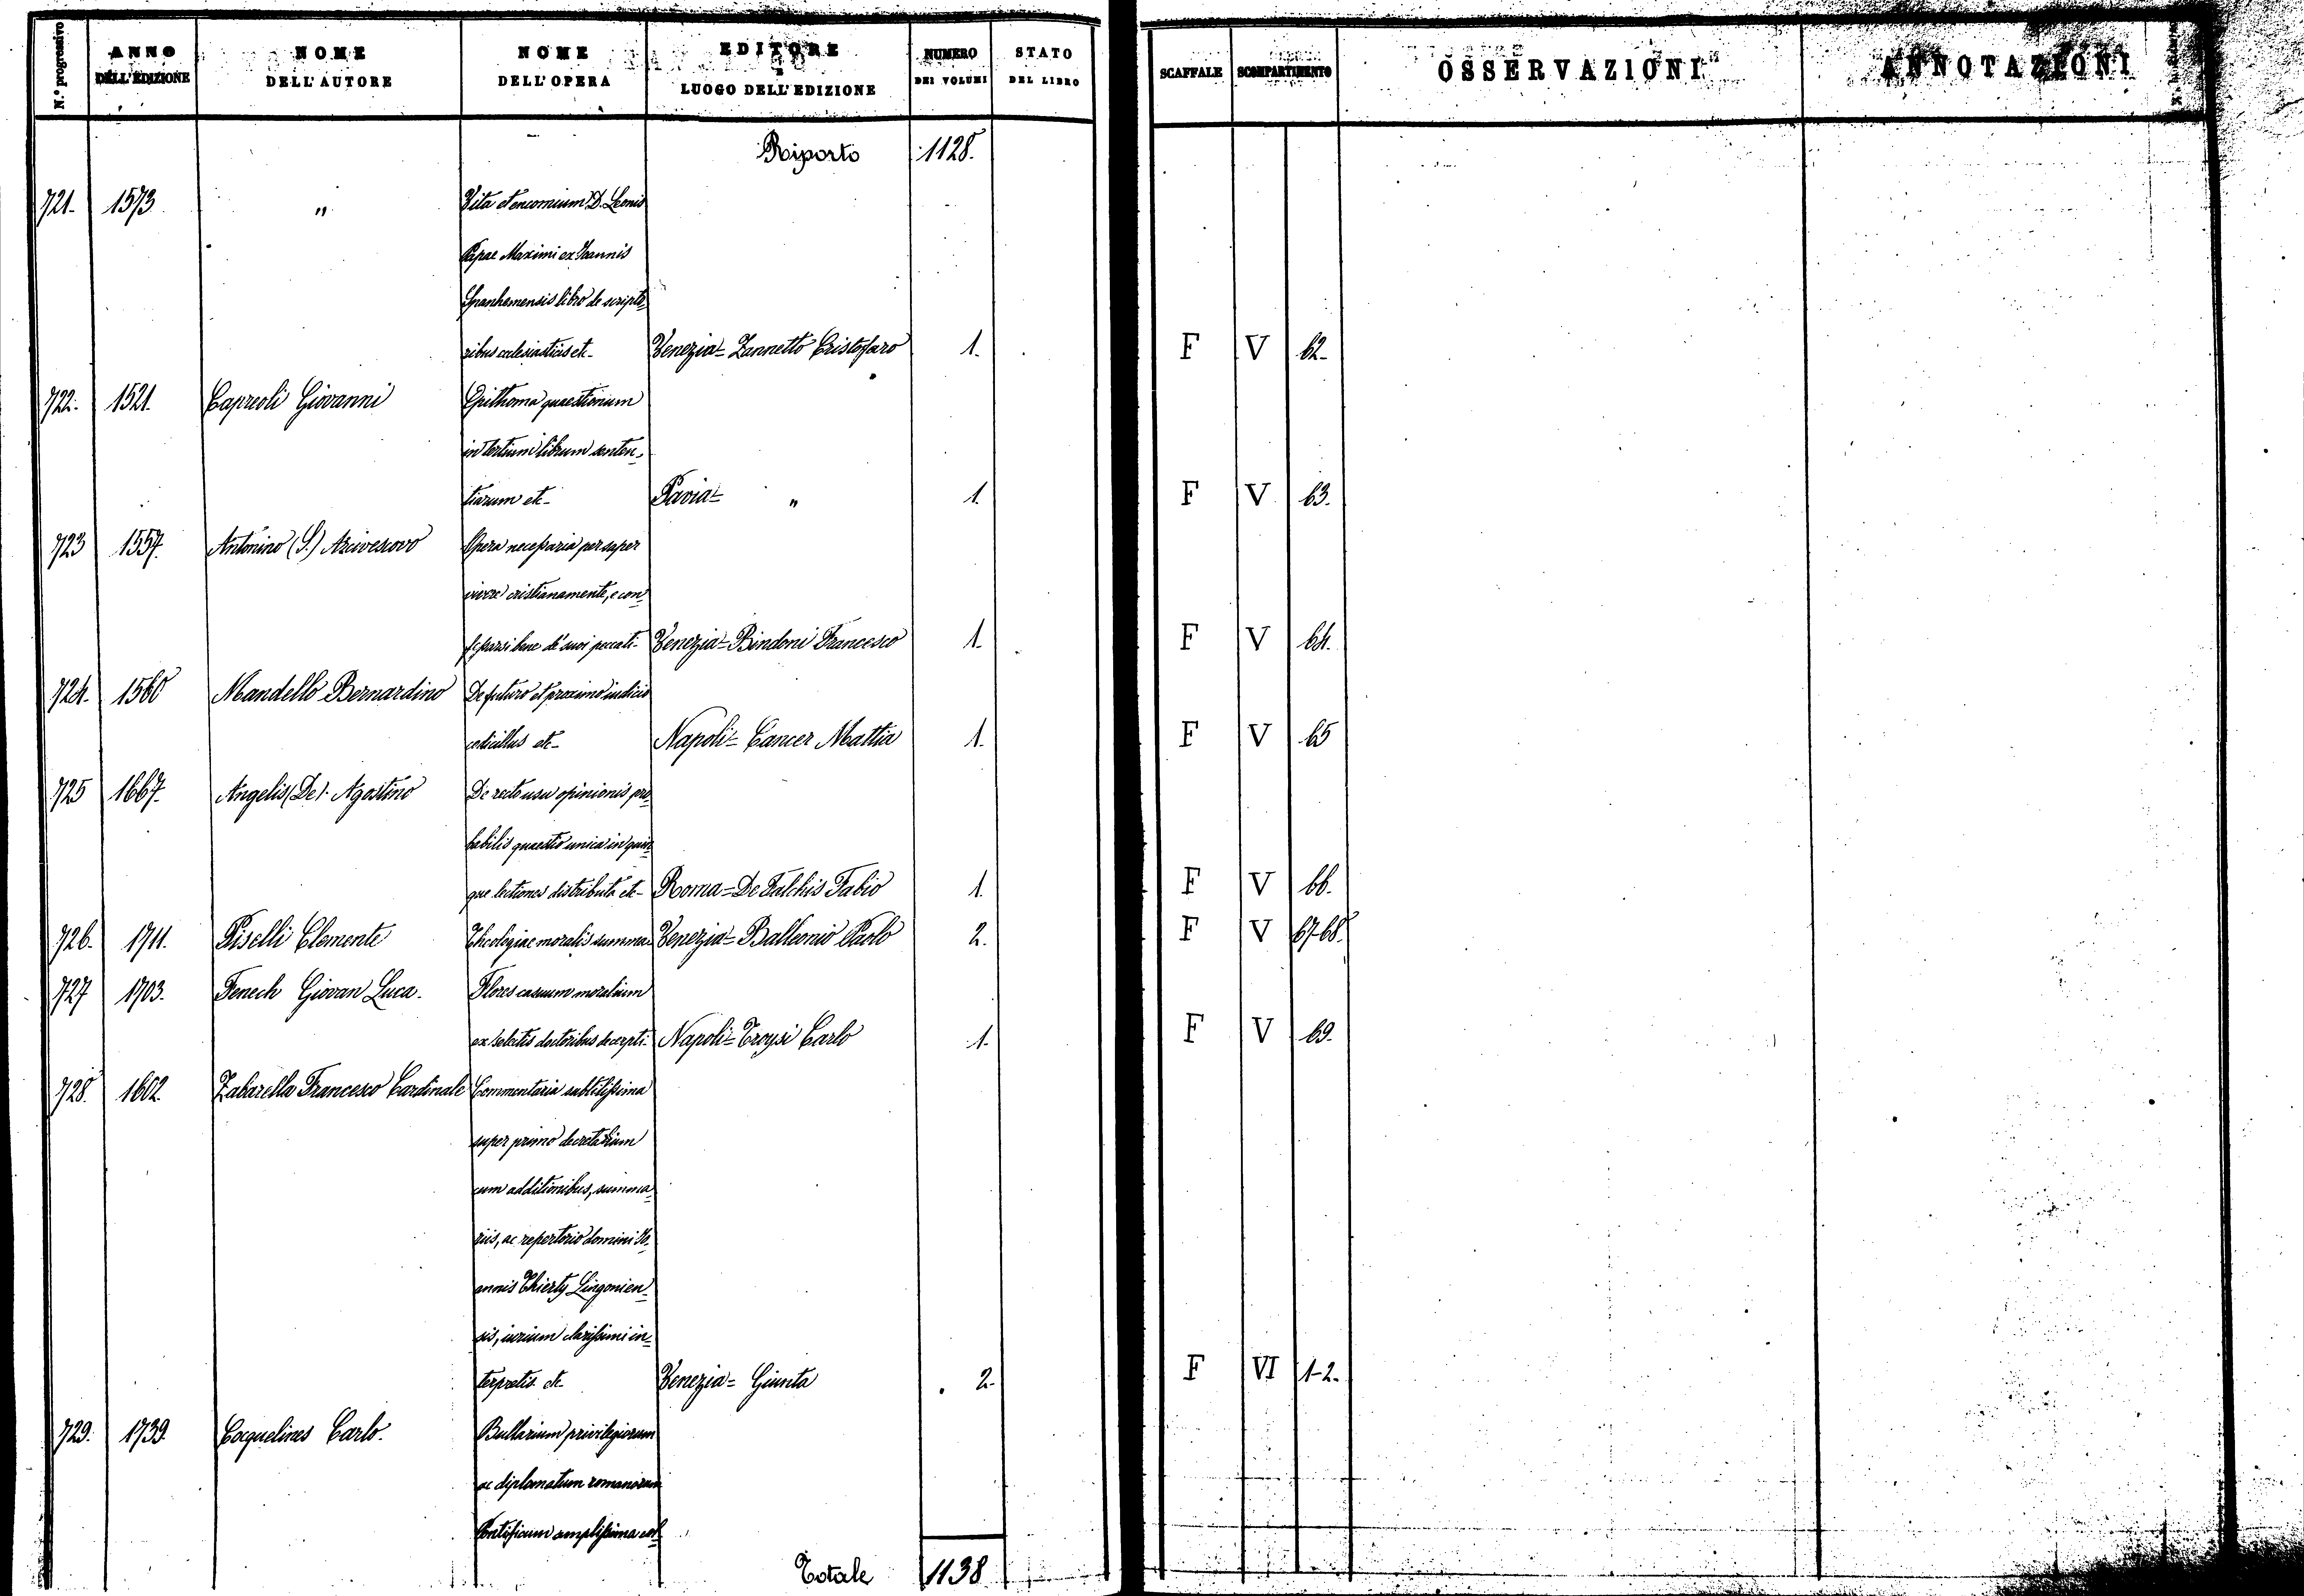 N.° progressivo ANNO DELL'EDIZIONE NOME DELL'AUTORE NOME DELL'OPERA EDITORE E LUOGO DELL'EDIZIONE NUMERO DEI VOLUMI STATO DEL LIBRO SCAFFALE SCOMPARTIMENTO OSSERVAZIONI ANNOTAZIONI
Riporto 1128.
721. 1573 " Vita et encomium D. Leonis
Papae Maximi ex Ioannis
Spanhemensis libro de scripto-
ribus eclesiasticis etc. Venezia = Zannetto Cristofaro 1. F V 62.
722. 1521. Capreoli Giovanni Epithoma quaestionum
in tertium librum senten-
tiarum etc. Pavia = " 1. F V 63.
723 1557. Antonino (S.) Arcivescovo Opera necessaria per saper
vivere cristianamente, e con-
fessarsi bene de' suoi peccati. Venezia = Bindoni Francesco 1. F V 64.
724. 1560 Mandello Bernardino De futuro et proximo iudicio
codicillus etc. Napoli = Cancer Mattia 1. F V 65
725 1667. Angelis (De). Agostino De recto usu opinionis pro-
babilis quaestio unica in quin-
que lectiones distributa etc. Roma = De Falchis Fabio 1. F V 66.
726. 1711. Piselli Clemente Theologiae moralis summa Venezia = Balleonio Paolo 2. F V 67-68.
727 1703. Fenech Giovan Luca. Flores casuum moralium
ex selectis doctoribus decerpti. Napoli = Troysi Carlo 1. F V 69.
728. 1602. Zabarella Francesco Cardinale Commentaria subtilissima
super primo decretalium
cum additionibus, summa-
riis, ac repertorio domini Io-
annis Thierty Lingonien-
sis, iurium clarissimi in-
terpretis etc. Venezia = Giunta 2. F VI 1-2.
729. 1739. Cocquelines Carlo. Bullarium privilegiorum
ac diplomatum romanorum
Pontificum amplissima col
Totale 1138